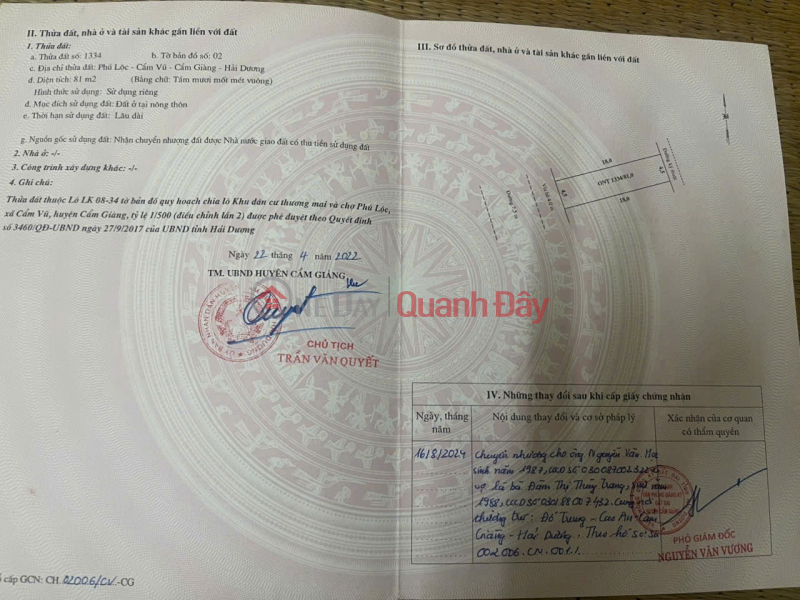 II. Thửa đất, nhà ở và tài sản khác gắn liền với đất
1. Thửa đất:
a. Thửa đất số: 1334 b. Tờ bản đồ số: 02
c. Địa chỉ thửa đất: Phú Lộc - Cẩm Vũ - Cẩm Giàng - Hải Dương
d. Diện tích: 81 m2 (Bằng chữ: Tám mươi mốt mét vuông)
Hình thức sử dụng: Sử dụng riêng
d. Mục đích sử dụng đất: Đất ở tại nông thôn
e. Thời hạn sử dụng đất: Lâu dài
g. Nguồn gốc sử dụng đất: Nhận chuyển nhượng đất được Nhà nước giao đất có thu tiền sử dụng đất
2. Nhà ở: -/-
3. Công trình xây dựng khác: -/-
4. Ghi chú:
Thửa đất thuộc Lô LK 08-34 tờ bản đồ quy hoạch chia lô Khu dân cư thương mại và chợ Phú Lộc,
xã Cẩm Vũ, huyện Cẩm Giàng, tỷ lệ 1/500 (điều chỉnh lần 2) được phê duyệt theo Quyết định
số 3460/QĐ-UBND ngày 27/9/2017 của UBND tỉnh Hải Dương
Ngày 22 tháng 4 năm 2022
TM. UBND HUYỆN CẨM GIÀNG
CHỦ TỊCH
TRẦN VĂN QUYẾT
cấp GCN: CH.02006/CN.-CG
III. Sơ đồ thửa đất, nhà ở và tài sản khác gắn liền với đất
18,0
4,5
ONT 1334/81,0
4,5
18,0
Đường 7.5 m
ONEDAY Quanh Đây
IV. Những thay đổi sau khi cấp giấy chứng nhận
Ngày, tháng năm
Nội dung thay đổi và cơ sở pháp lý
Xác nhận của cơ quan có thẩm quyền
16/8/2024
Chuyển nhượng cho ông Nguyễn Văn
sinh năm 1987, CCCD số
vợ là bà Đàm Thị Thùy Trang, sinh năm
1988, CCCD số 030188007432. Cùng
thường trú: Đỗ Trung - Cao An - Cẩm
Giàng - Hải Dương. Theo hồ sơ số
002006.CN.001.
PHÓ GIÁM ĐỐC
NGUYỄN VĂN VƯƠNG